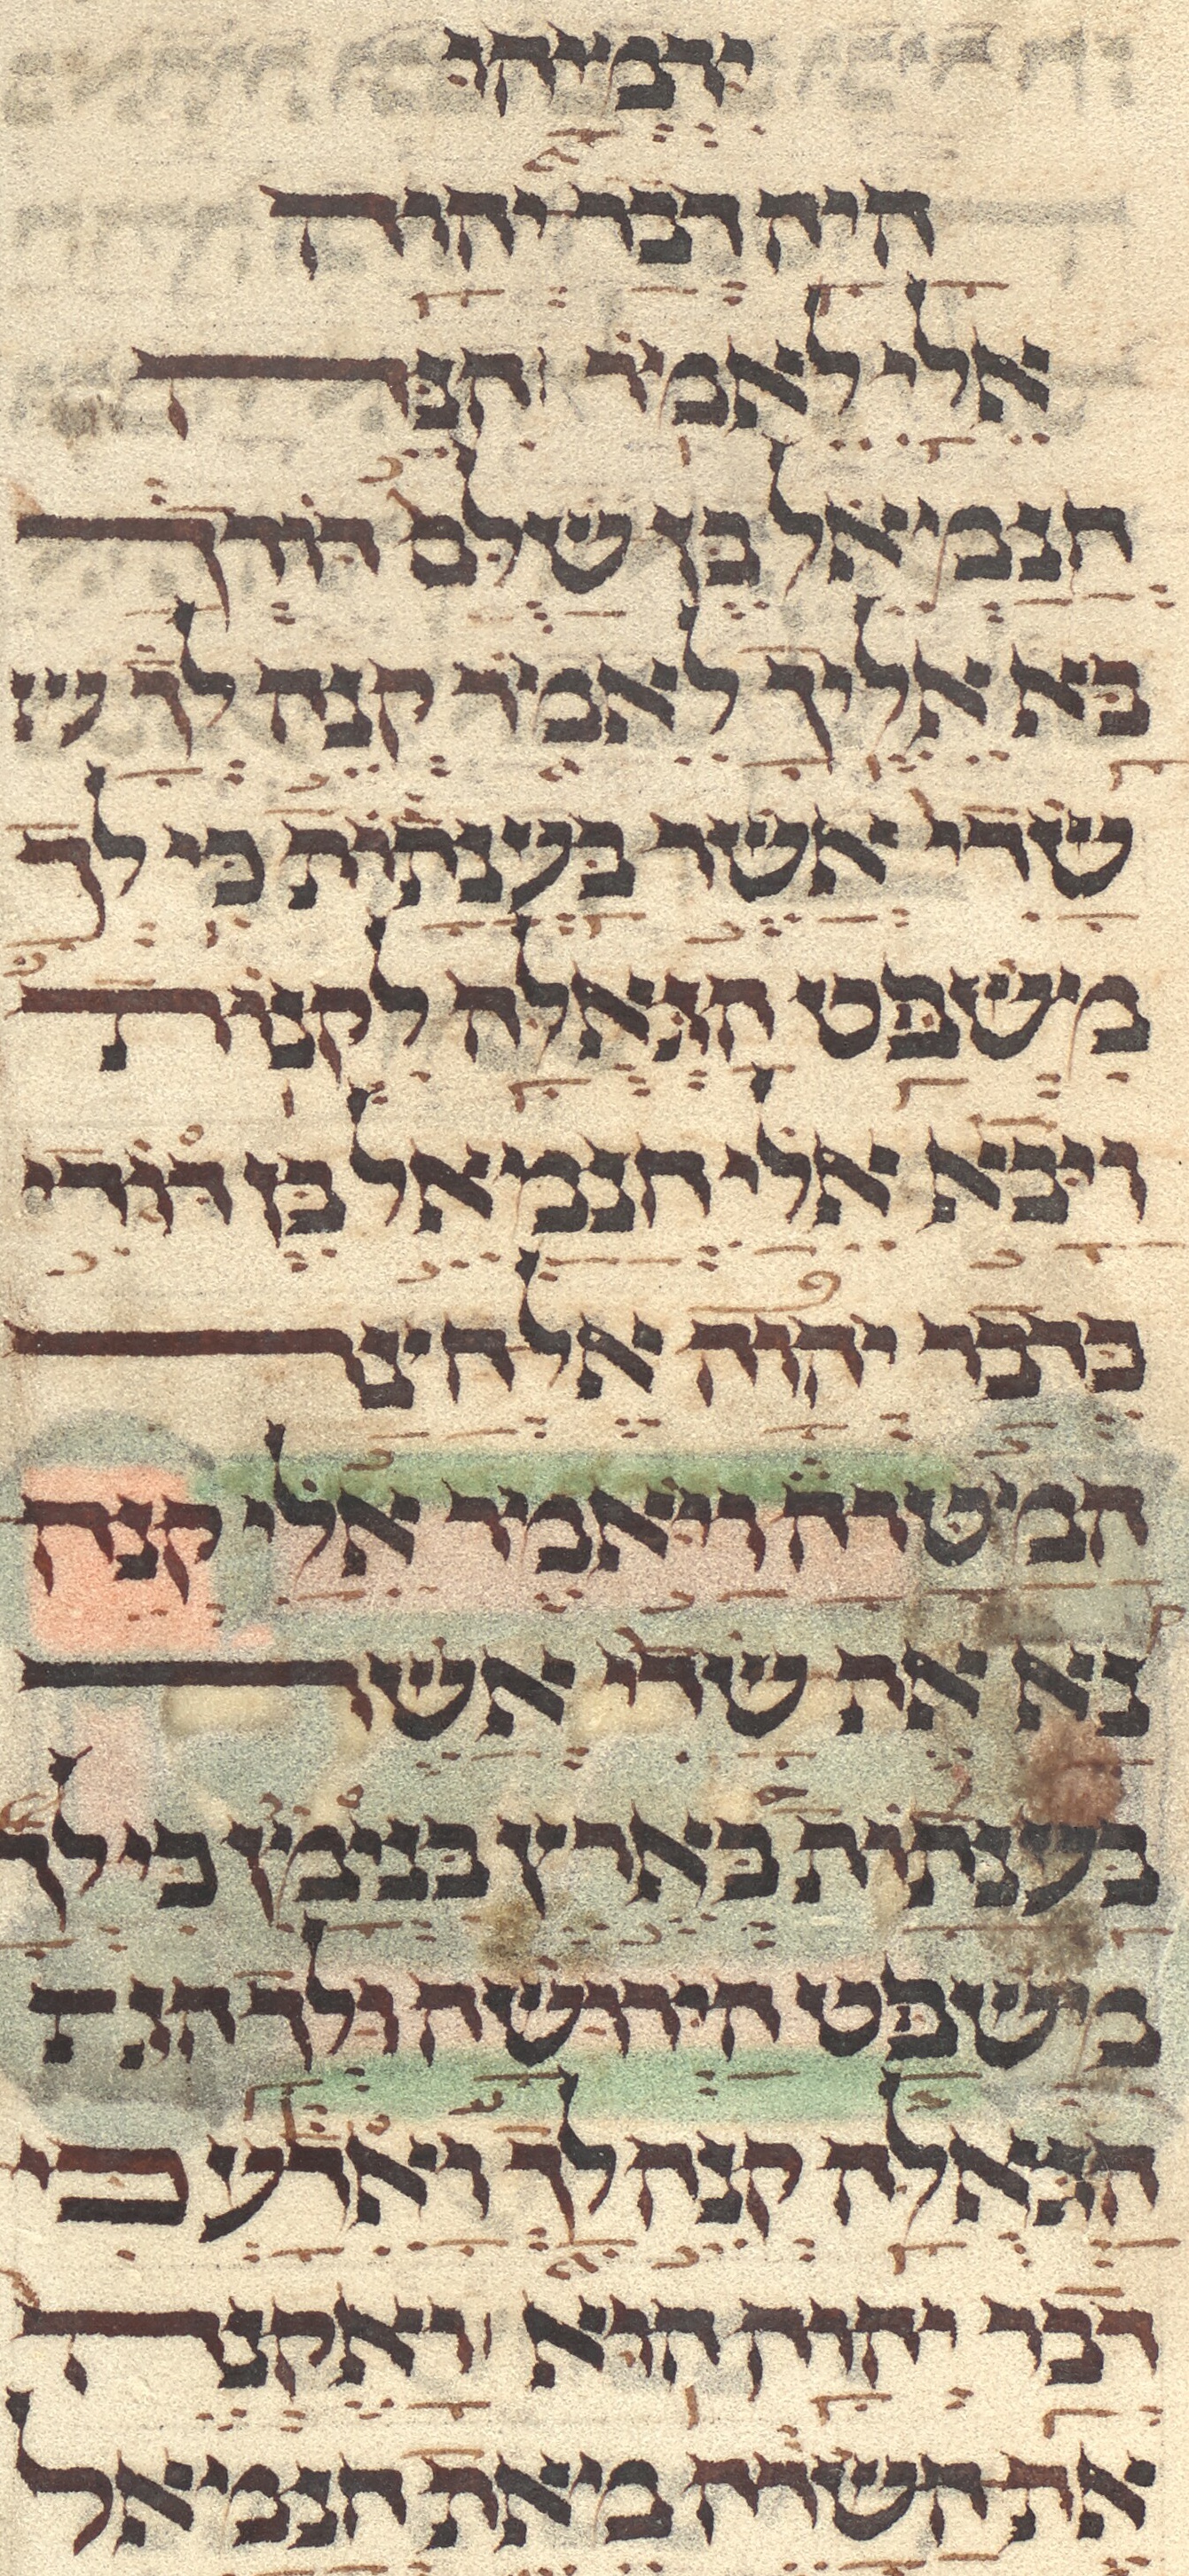 ירמיהו
היה דבר יהוה
אלי לאמר הנה
חנמאל בן שלם דודך
בא אליך לאמר קנה לך
שדי אשר בענתות כי לך
משפט הגאלה לקנות
ויבא אלי חנמאל בן דודי
כדבר יהוה אל חצר
המטרה ויאמר אלי קנה
נא את שדי אשר
בענתות בארץ בנימין כי לך
משפט הירושה ולך הג
הגאלה קנה לך ואדע כי
דבר יהוה הוא ואקנה
את השדה מאת חנמאל